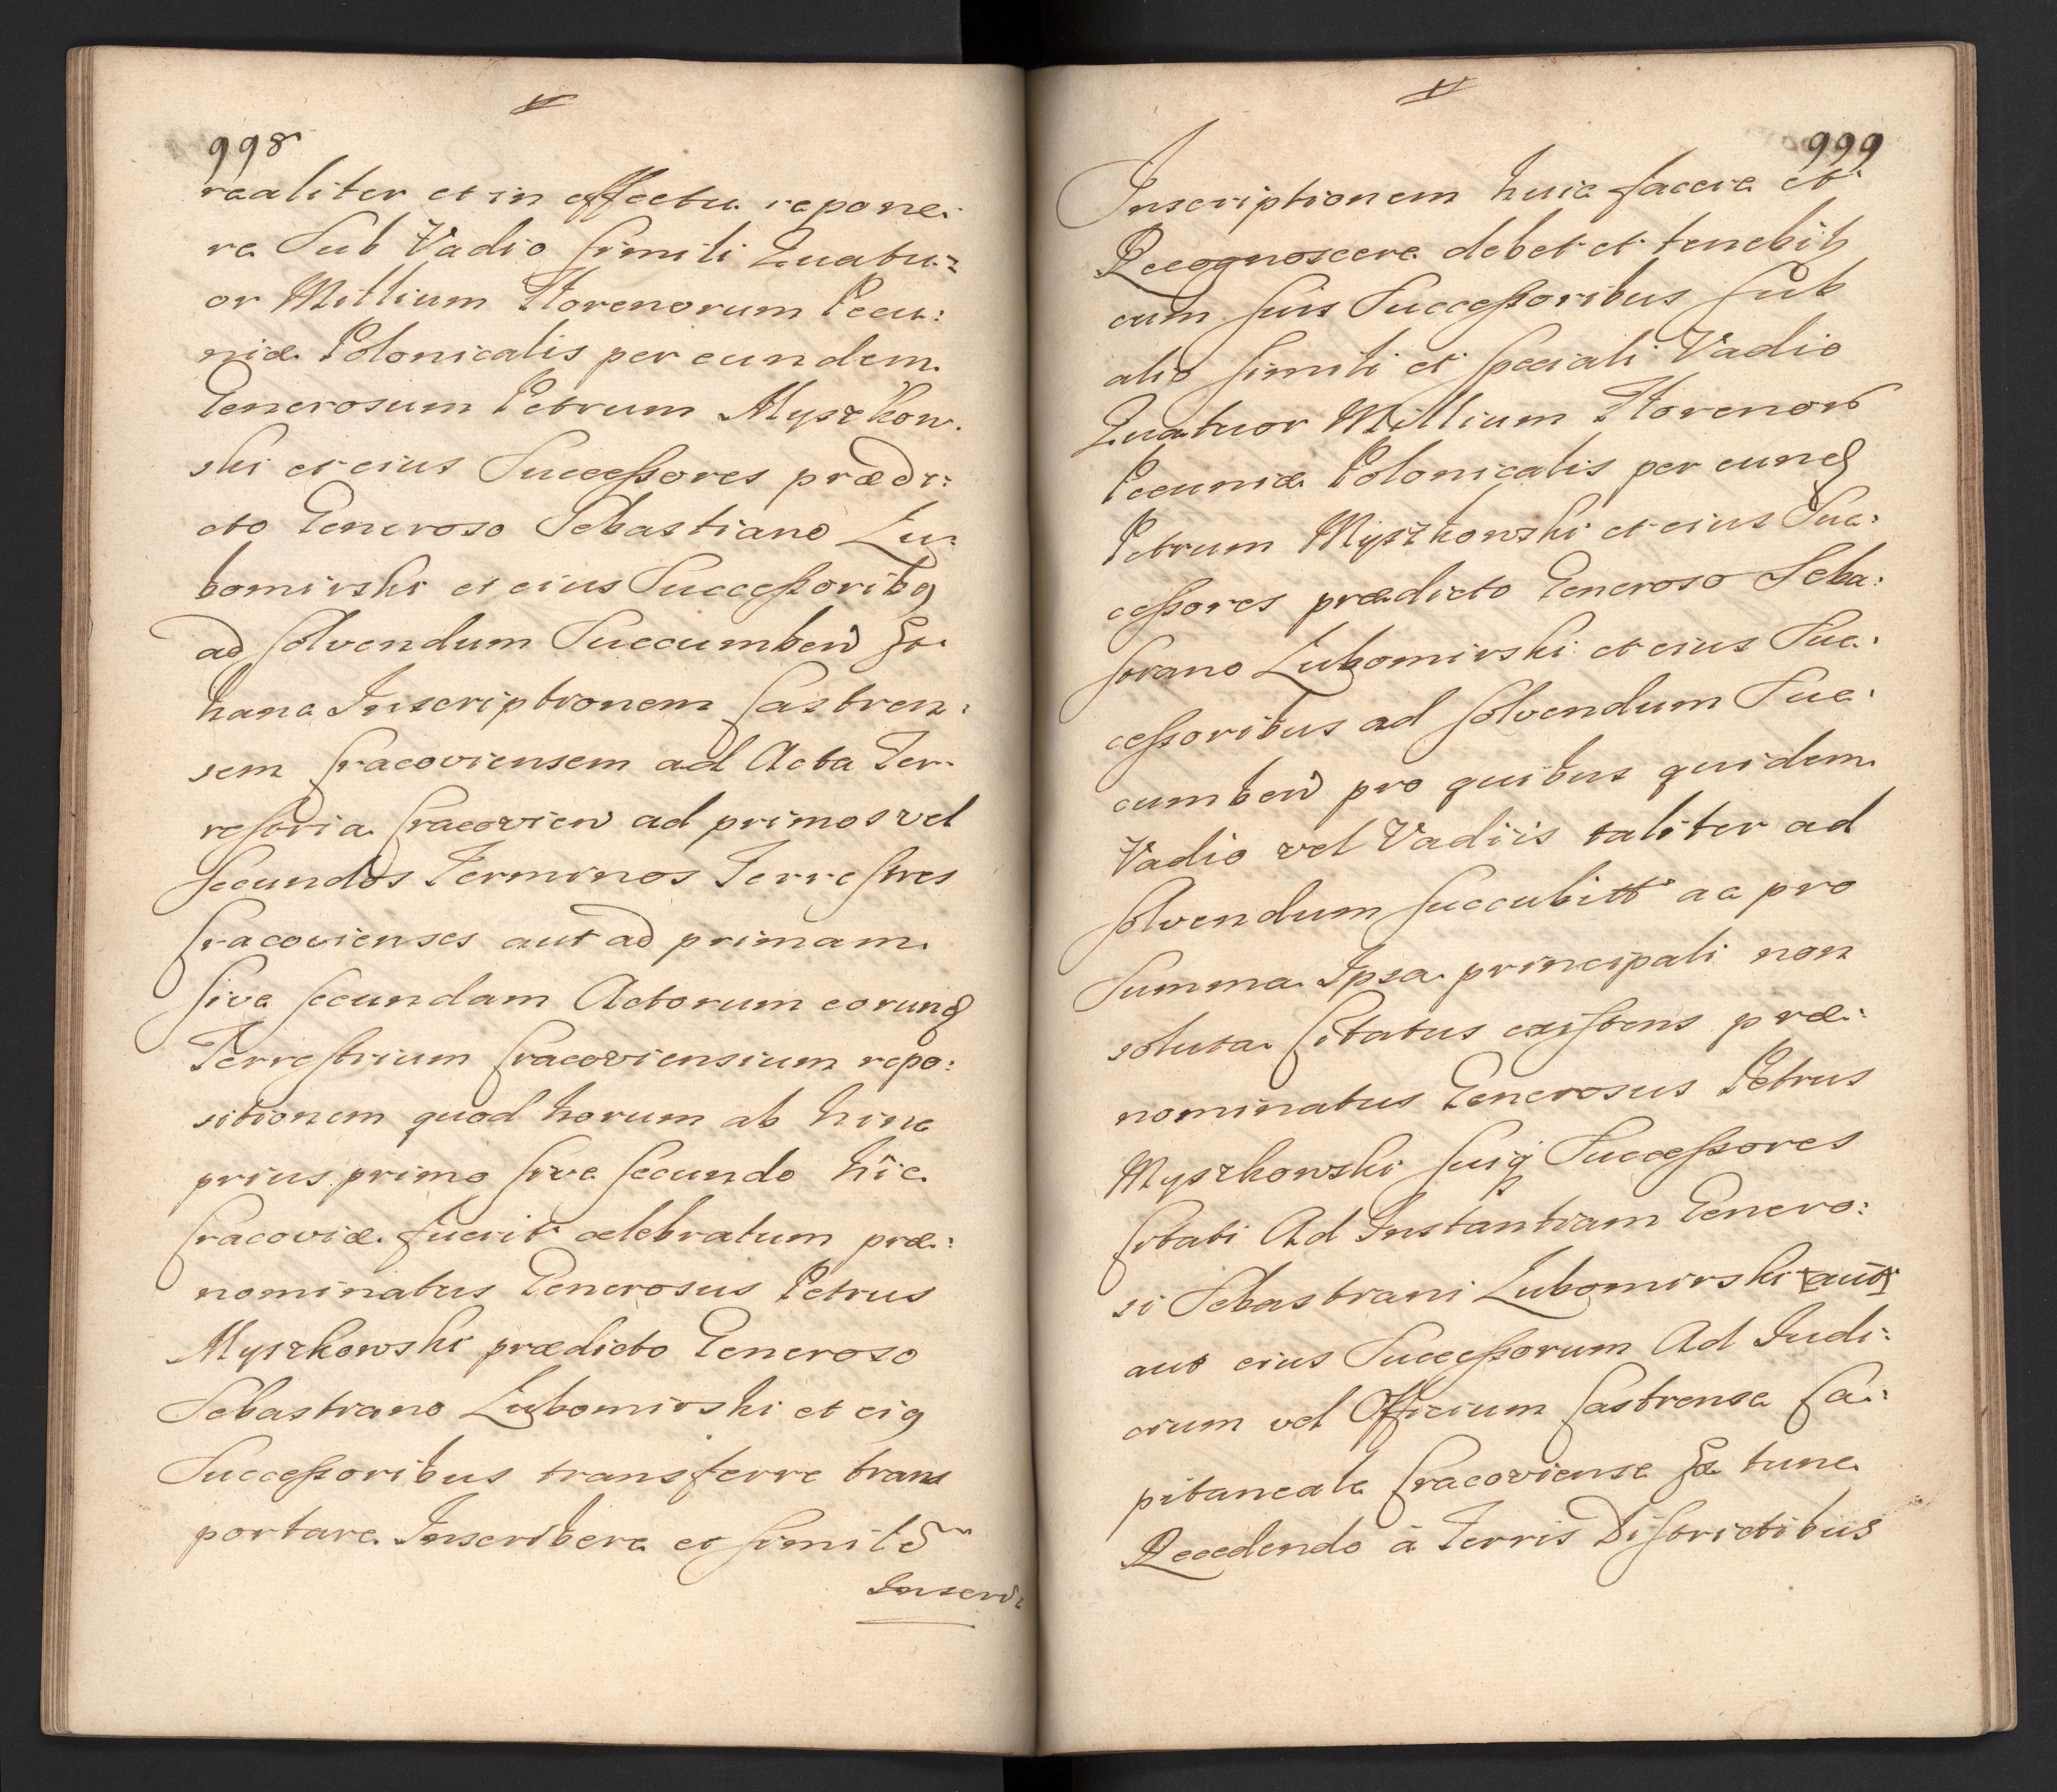 998
realiter et in effectu repone:
re Sub Vadio simili Quatu=
or Millium Florenorum Pecu:
niæ Polonicalis per eundem
Generosum Petrum Myszkow.
ski et eius Successores prædi:
cto Generoso Sebastiano Lu:
bomirski et eius Successoribq
ad solvendum Succumben Et
hanc Inscriptionem Castren:
sem Cracoviensem ad Acta Ter:
restria Cracovien ad primos vel
secundos Terminos Terrestres
Cracovienses aut ad primam
sive secundam Actorum eorund
Terrestrium Cracoviensium repo:
sitionem quod horum ab hinc
prius primo sive secundo hîc
Cracoviæ fuerit celebratum præ:
nominatus Generosus Petrus
Myszkowski prædicto Generoso
Sebastiano Lubomirski et eiq
Successoribus transferre trans
portare Inscribere et simile
Inscri:
999
Inscriptionem huic facere et
Recognoscere debet et tenebit
cum suis Successoribus sub
alio simili et speciali Vadio
Quatuor Millium Florenor
Pecuniæ Polonicalis per eund
Petrum Myszkowski et eius Suc:
cessores prædicto Generoso Seba:
stiano Lubomirski et eius Suc:
cessoribus ad solvendum Suc:
cumben pro quibus quidem
Vadio vel Vadiis taliter ad
solvendum succubitt ac pro
Summa Ipsa principali non
soluta Citatus existens præ:
nominatus Generosus Petrus
Myszkowski suiq Successores
Citati Ad Instantiam Genero:
si Sebastiani Lubomirski [aut]
aut eius Successorum Ad Judi:
cium vel Officium Castrense Ca:
pitaneale Cracoviense Ex tunc
Recedendo à Terris Districtibus